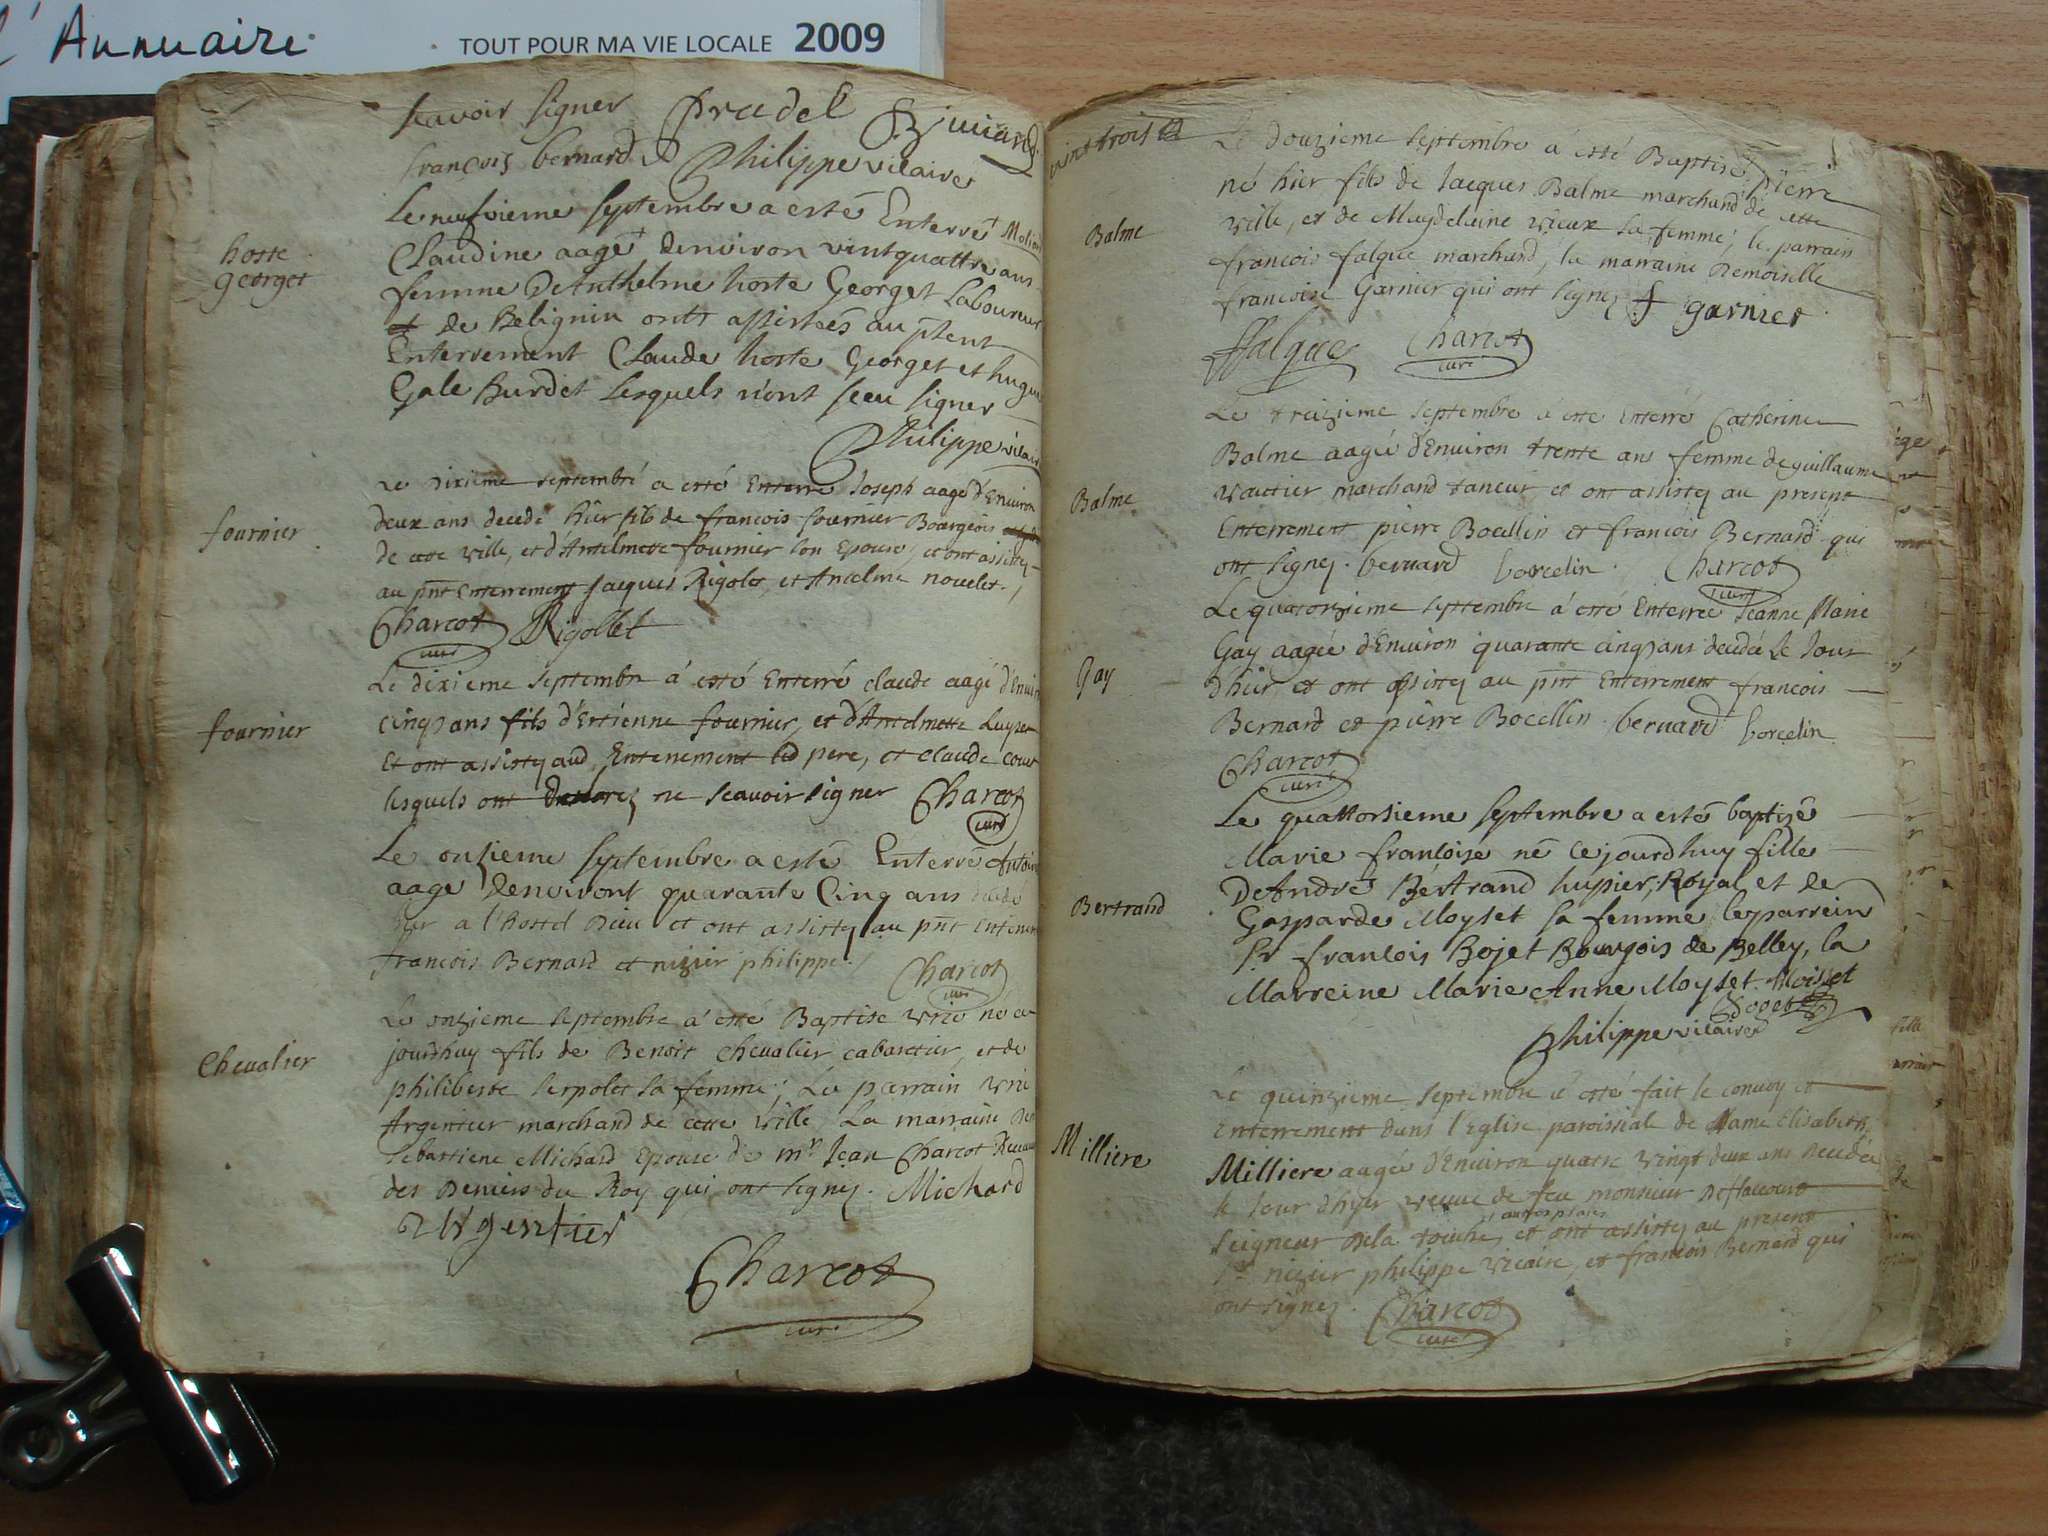 l'Annuaire
TOUT POUR MA VIE LOCALE 2009
scavoir signer Pradel
françois bernard Philippe vicaire
hoste
georget
Le neufvieme septembre a esté Enterré
Claudine aagé denviron vintquattre ans
femme De Anthelme hoste Georget Laboureur
de Belignin ont assistées au pñent
Enterrement Claude hoste Georget et hugue
Gale Burdet Lesquels n'ont sceu signer
Philippe vicaire
fournier
Le Dixieme septembre a esté Enterré Joseph aagé d'Environ
deux ans decede hier fils de francois fournier Bourgeois
de cette ville, et d'Antelmette fournier son Epouse, et ont assistez
au pñt Enterrement Jacques Rigolet, et Ancelme novelet.
Charcot Rigollet
curé
fournier
Le dixieme septembre à esté Enterré claude aagé d'Environ
cinq ans fils d'Estienne fournier, et d'Antelmette
et ont assistez aud Enterrement led pere, et claude
lesquels ont ne scavoir signer Charcot
curé
Le onzieme septembre a esté Enterré Antoine
aage denviront quarante Cinq ans
hier a l'hostel Dieu et ont assistez au pñt Enterrem
francois Bernard et nizier philippe.
Charcot
curé
Chevalier
Le onzieme septembre a esté Baptisé né ce
jourdhuy fils de Benoit chevalier cabaretier, et de
philiberte serpolet sa femme; Le parrain
Argentier marchand de cette ville La marraine
sebastiene Michard Epouse de mr Jean Charcot
des Deniers du Roy qui ont signez. Michard
Argentier
Charcot
curé
vint trois
Balme
Le Douzieme septembre a esté Baptisé Pierre
né hier fils de Jacques Balme marchand de cette
ville, et de Magdelaine vieux sa femme; le parrain
francois falque marchand, la marraine Demoiselle
francoise Garnier qui ont signez f garnier
ffalque Charcot
curé
Balme
Le treizieme septembre a esté Enterré Catherine
Balme aagée d'Environ trente ans femme de guillaume
vautier marchand taneur et ont assistez au present
Enterrement pierre Bocellin et francois Bernard qui
ont signez. bernard borcelin. Charcot
curé
Gay
Le quatorzieme septembre à esté Enterrée Jeanne Marie
Gay aagée d'Environ quarante cinq ans decedée Le Jour
d'hier et ont assistez au pñt Enterrement francois
Bernard et pierre Bocellin. bernard borcelin
Charcot
curé
Bertrand
Le quattorsieme septembre a esté baptisé
Marie françoise né ce jourdhuy fille
De André Bértrand hupier Royal et de
Gasparde Moyset sa femme le parrein
Sr françois Bojet Bourgois de Belley, la
Marreine Marie Anne Moyset. Moisset
Bojet
Philippe vicaire
Milliere
Le quinzieme septembre a esté fait le convoy et
Enterrement dans l'Eglise paroissiale de Dame Elisabeth
Milliere aagée d'Environ quatre vingt deux ans decedée
le Jour d'hyer veuve de feu monsieur
Seigneur Dela touche, et ont assistez au present
Sr nizier philippe vicaire, et francois Bernard qui
ont signez. Charcot
curé